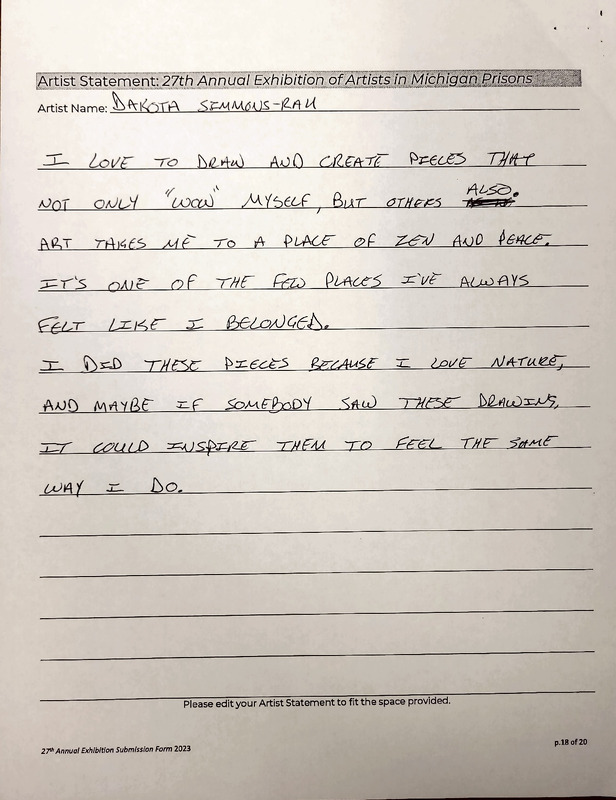 Artist Statement: 27th Annual Exhibition of Artists in Michigan Prisons
Artist Name: DAKOTA SIMMONS-RAU
I LOVE TO DRAW AND CREATE PIECES THAT
NOT ONLY "WOW" MYSELF, BUT OTHERS ALSO.
ART TAKES ME TO A PLACE OF ZEN AND PEACE.
IT'S ONE OF THE FEW PLACES I'VE ALWAYS
FELT LIKE I BELONGED.
I DID THESE PIECES BECAUSE I LOVE NATURE,
AND MAYBE IF SOMEBODY SAW THESE DRAWINS,
IT COULD INSPIRE THEM TO FEEL THE SAME
WAY I DO.
Please edit your Artist Statement to fit the space provided.
27th Annual Exhibition Submission Form 2023
p.18 of 20